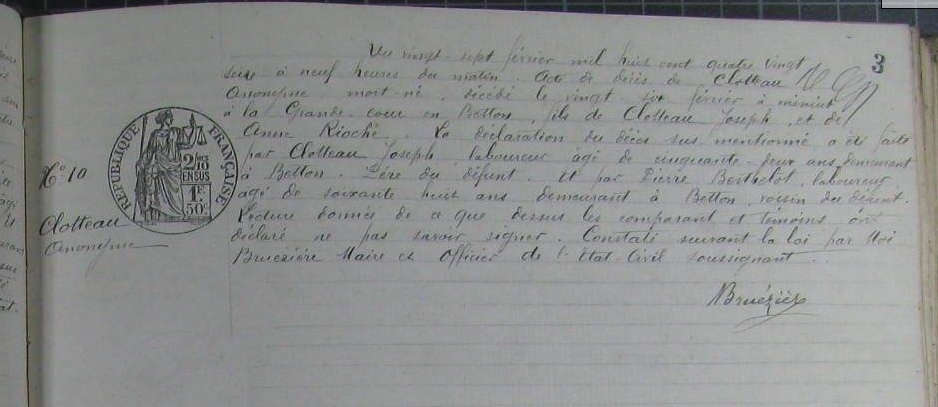 3
Du vingt sept février mil huit cent quatre vingt
seize à neuf heures du matin. Acte de décès de Clotteau
Anonyme, mort-né, décédé le vingt six février à minuit
à la Grande cour en Betton, fils de Clotteau Joseph et de
Anne Rioché. La déclaration du décès sus mentionné a été faite
par Clotteau Joseph laboureur âgé de cinquante-deux ans demeurant
à Betton. Père du défunt. Et par Pierre Berthelot, laboureur,
âgé de soixante huit ans demeurant à Betton, voisin du défunt.
Lecture donnée de ce que dessus les comparant et témoins ont
déclaré ne pas savoir signer. Constaté suivant la loi par Moi
Bruézière Maire et Officier de l'Etat-Civil soussignant.
Bruézière
N° 10
Clotteau
Anonyme
RÉPUBLIQUE FRANÇAISE
2/10
EN SUS
1F.
50C.